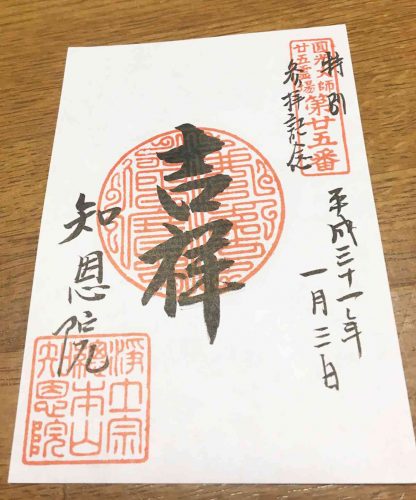 圓光大師
廿五霊場
第廿五番
特別
参拝記念
平成三十一年
一月三日
吉祥
知恩院
浄土宗
總本山
知恩院